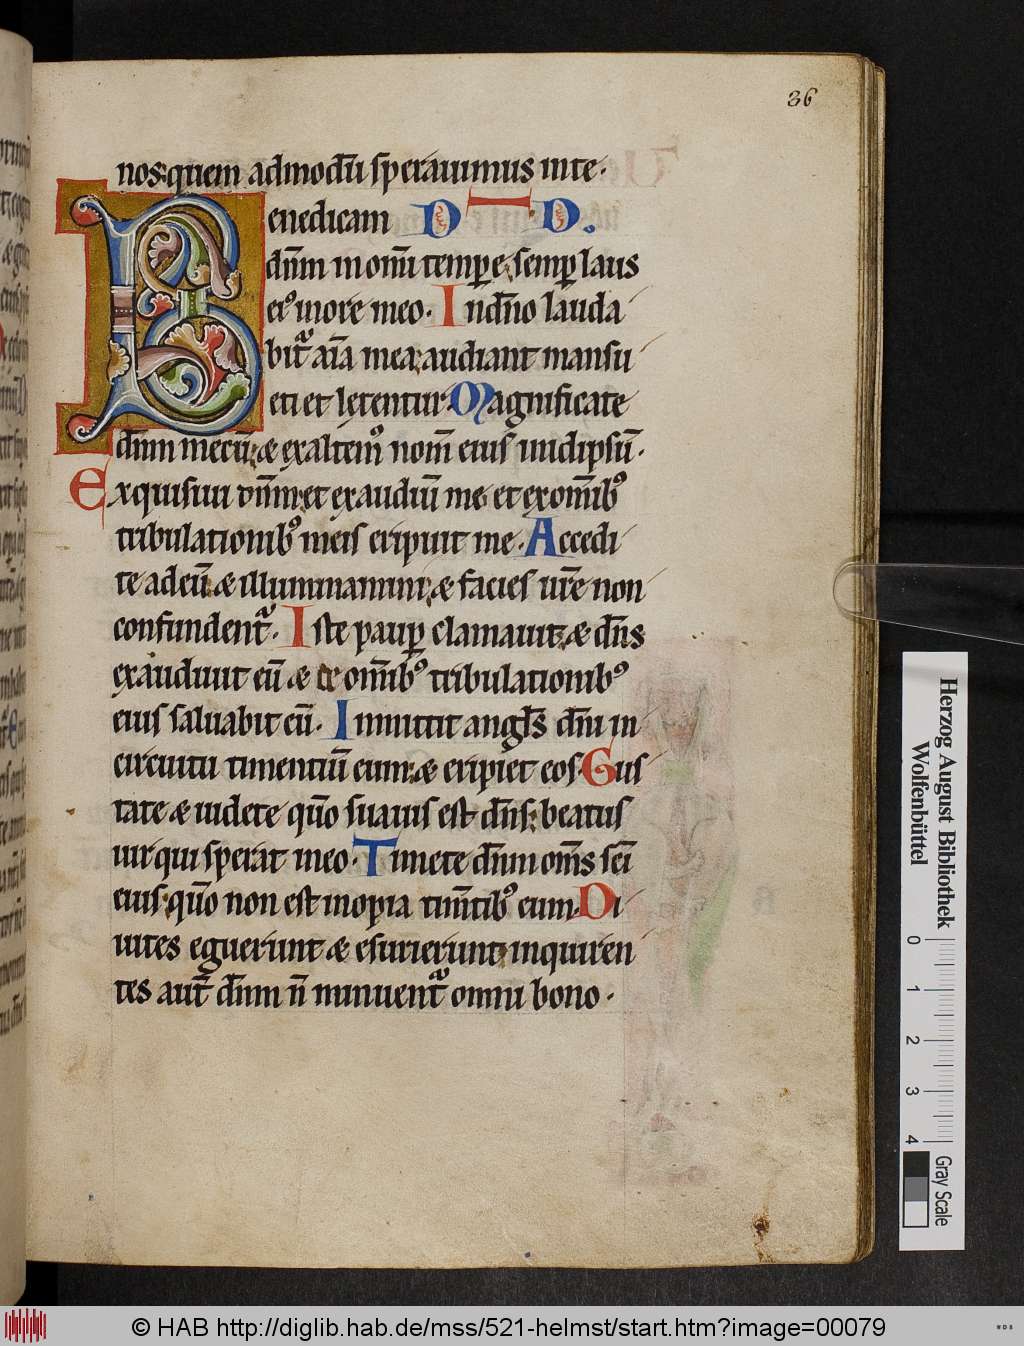 36
nos: quem admodū sperauimus inte.
Benedicam D T D.
dn̄m in om̄i tempe, semp laus
ei᷒ in ore meo. In dn̄o lauda
bit᷑ aīa mea, audiant mansu
eti et letentur. Magnificate
dn̄m mecū, & exaltem᷒ nom̄ eius in idipsū.
Exquisiui dn̄m, et exaudiū me, et ex om̄ib᷒
tribulationib᷒ meis eripuit me. Accedi
te ad eū & illuminamini, & facies ur̄e non
confundent᷑. Iste paup clamauit, & dn̄s
exaudiuit eū & de om̄ib᷒ tribulationib᷒
eius saluabit eū. Inmittit angl̄s dn̄i in
circuitu timentiū eum, & eripiet eos. Gus
tate & uidete qūo suauis est dn̄s, beatus
uir qui sperat in eo. Timete dn̄m om̄s sc̄i
eius, qūo non est inopia tim̄tib᷒ eum. Di
uites eguerunt & esurierunt, inquiren
tes aut̄ dn̄m n̄ minuent᷑ omni bono.
Herzog August Bibliothek
Wolfenbüttel
0 1 2 3 4
Gray Scale
© HAB http://diglib.hab.de/mss/521-helmst/start.htm?image=00079